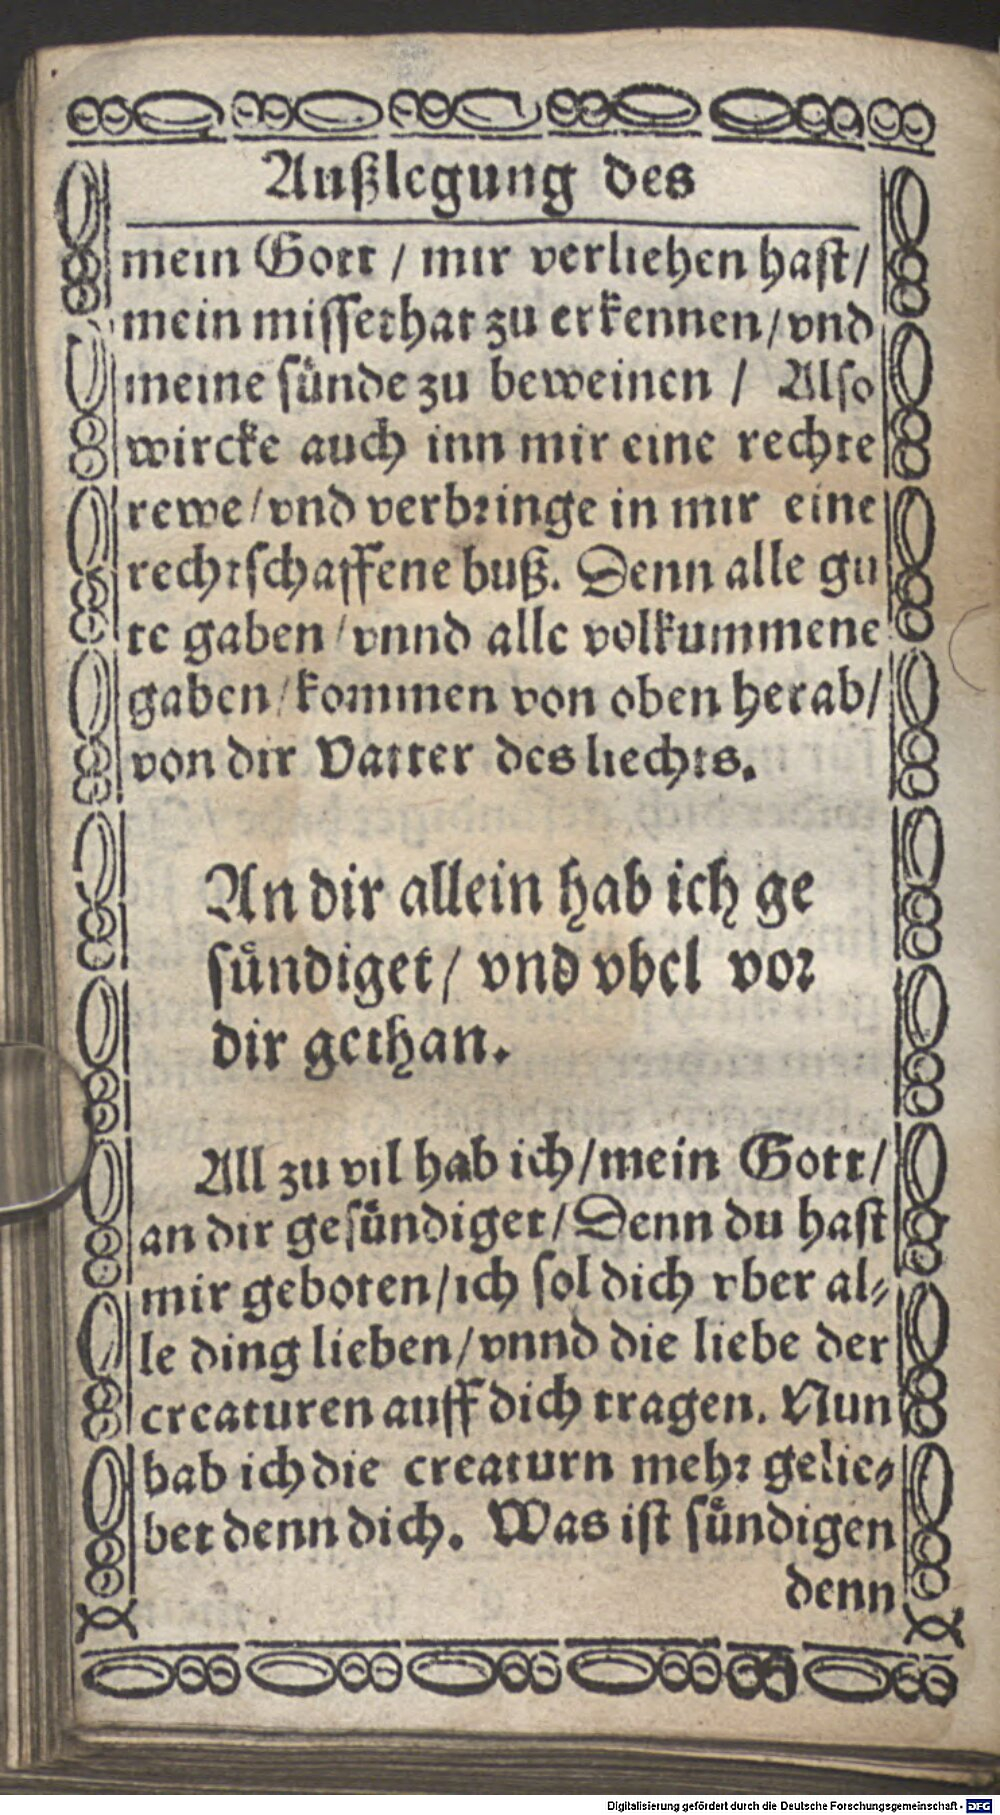 Außlegung des
mein Gott / mir verliehen hast/
mein missethat zu erkennen/vnd
meine sünde zu beweinen / Also
wircke auch inn mir eine rechte
rewe/vnd verbringe in mir eine
rechtschaffene buß. Denn alle gu
te gaben/vnnd alle volkummene
gaben/kommen von oben herab/
von dir Vatter des liechts.
An dir allein hab ich ge
sündiget/ vnd vbel vor
dir gethan.
All zu vil hab ich/mein Gott/
an dir gesündiget/Denn du hast
mir geboten/ich sol dich vber al⸗
le ding lieben/vnnd die liebe der
creaturen auff dich tragen. Nun
hab ich die creaturn mehr gelie⸗
bet denn dich. Was ist sündigen
denn
Digitalisierung gefördert durch die Deutsche Forschungsgemeinschaft - DFG